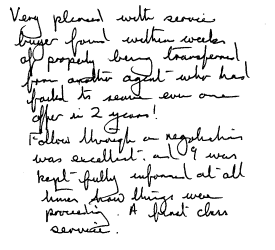 Very pleased with service
buyer found within weeks
of property being transferred
from another agent who had
failed to secure even one
offer in 2 years!
Follow through on negotiation
was excellent and I was
kept fully informed at all
times how things were
proceeding. A first class
service.